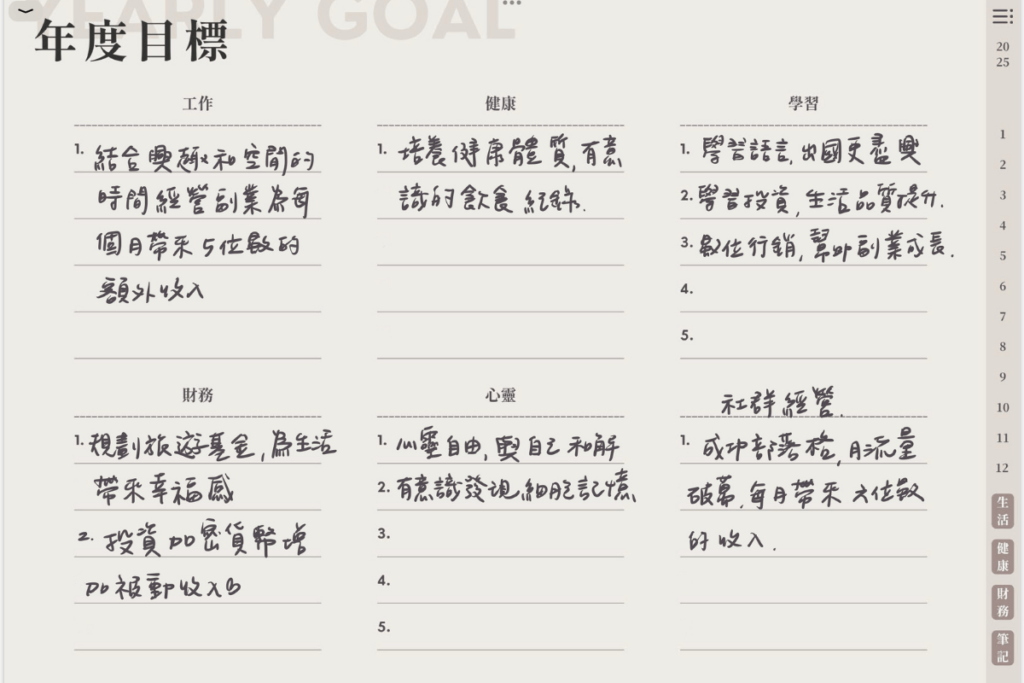 YEARLY GOAL
年度目標
20
25
工作
1. 結合興趣和空閒的
時間經營副業為每
個月帶來5位數的
額外收入
健康
1. 培養健康體質,有意
識的飲食紀錄.
學習
1. 學習語言,出國更盡興
2. 學習投資,生活品質提升.
3. 數位行銷,幫助副業成長.
4.
5.
財務
1. 規劃旅遊基金,為生活
帶來幸福感
2. 投資加密貨幣增
加被動收入
心靈
1. 心靈自由,與自己和解
2. 有意識發現細胞記憶
3.
4.
5.
社群經營.
1. 成功部落格,月流量
破萬,每月帶來六位數
的收入.
1
2
3
4
5
6
7
8
9
10
11
12
生活
健康
財務
筆記